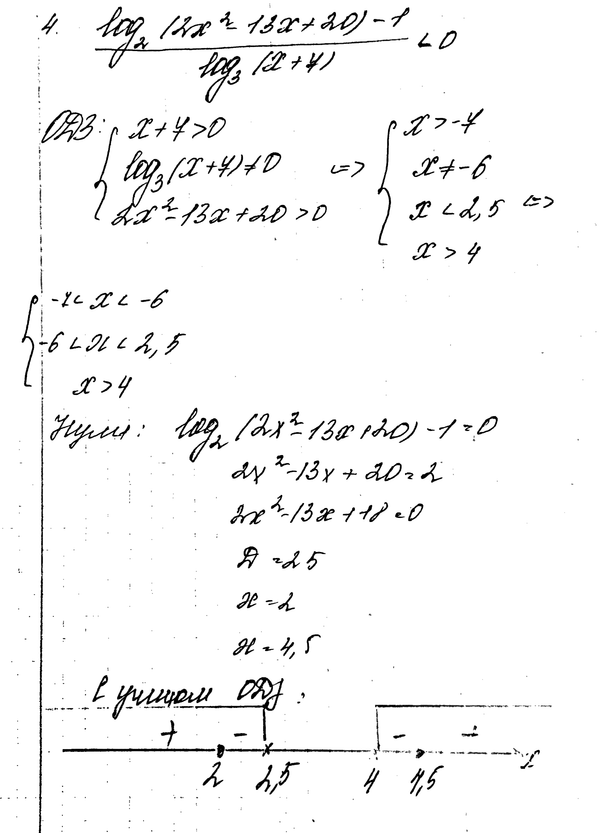 4. log₂(2x² - 13x + 20) - 1
log₃(x + 7)
< 0
ОДЗ: { x + 7 > 0
log₃(x + 7) ≠ 0
2x² - 13x + 20 > 0
<=> { x > -7
x ≠ -6
x < 2,5 <=>
x > 4
{ -7 < x < -6
-6 < x < 2,5
x > 4
Нули: log₂(2x² - 13x + 20) - 1 = 0
2x² - 13x + 20 = 2
2x² - 13x + 18 = 0
D = 25
x = 2
x = 4,5
С учетом ОДЗ:
+ - - +
2 2,5 4 4,5 x